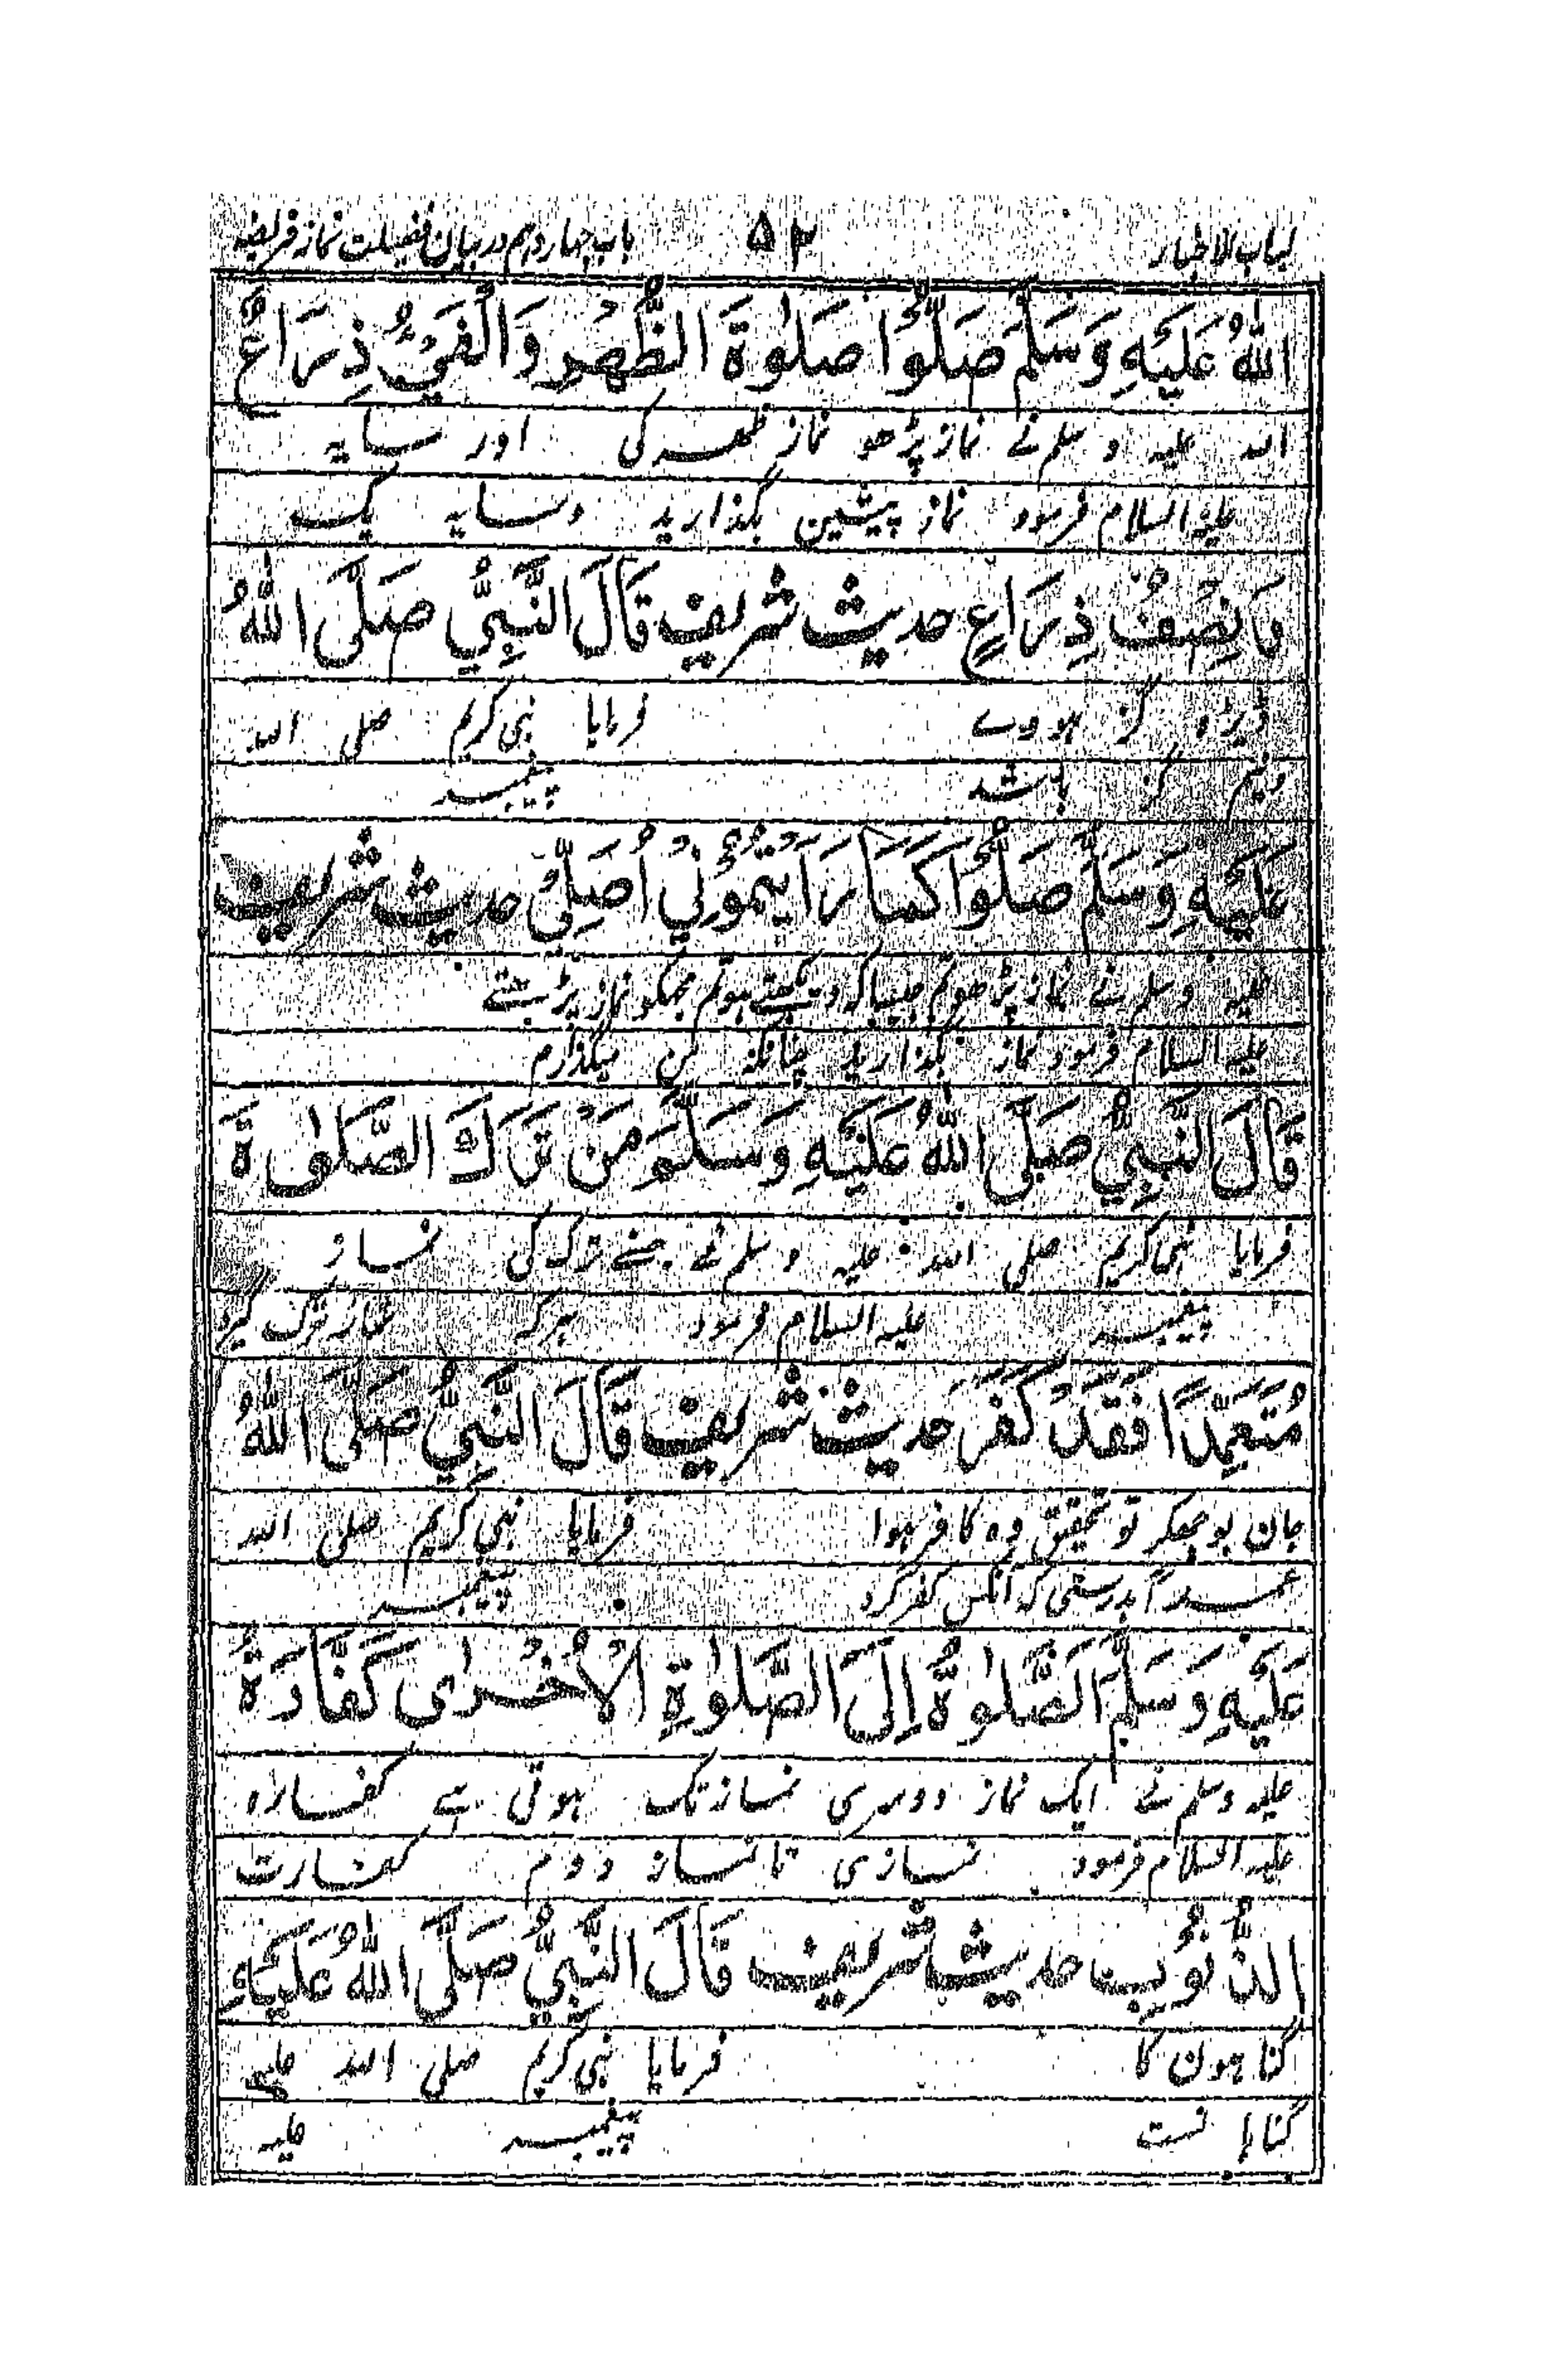 لباب الاخبار ۵۲ باب چهاردهم در بیان فضیلت نماز فریضه
اللّٰهُ عَلَيْهِ وَسَلَّمَ صَلُّوْا صَلٰوةَ الظُّهْرِ وَالْفَيْءُ ذِرَاعٌ
الله علیه و سلم نے نماز پڑھو نماز ظہر کی اور سایہ
علیه السلام فرمود نماز پیشین بگذارید و سایه یک
وَنِصْفُ ذِرَاعٍ حدیث شریف قَالَ النَّبِيُّ صَلَّى اللّٰهُ
ڈیڑہ گز ہووے فرمایا نبی کریم صلی الله
ونیم گز باشد پیغمبر
عَلَيْهِ وَسَلَّمَ صَلُّوْا كَمَا رَاَيْتُمُوْنِيْ اُصَلِّيْ حدیث شریف
علیه وسلم نے نماز پڑھو تم جیسا کہ دیکھتے ہو تم مجھکو نماز پڑھتے
علیه السلام فرمود نماز بگذارید چنانکه من میگذارم
قَالَ النَّبِيُّ صَلَّى اللّٰهُ عَلَيْهِ وَسَلَّمَ مَنْ تَرَكَ الصَّلٰوةَ
فرمایا نبی کریم صلی الله علیه و سلم نے جسنے ترک کی نماز
پیغمبر علیه السلام فرمود هرکه نماز ترک گیرد
مُتَعَمِّدًا فَقَدْ كَفَرَ حدیث شریف قَالَ النَّبِيُّ صَلَّى اللّٰهُ
جان بوجھکر تو تحقیق وہ کافر ہوا فرمایا نبی کریم صلی الله
عمداً بدرستی که آنکس کفر کرد پیغمبر
عَلَيْهِ وَسَلَّمَ اَلصَّلٰوةُ اِلَى الصَّلٰوةِ الْاُخْرٰى كَفَّارَةُ
علیه وسلم نے ایک نماز دوسری نماز تک ہوتی ہے کفارہ
علیه السلام فرمود نمازی تا نماز دوم کفارت
الذُّنُوْبِ حدیث شریف قَالَ النَّبِيُّ صَلَّى اللّٰهُ عَلَيْهِ وَ
گناہون کا فرمایا نبی کریم صلی الله علیه
گناہا نست پیغمبر علیه